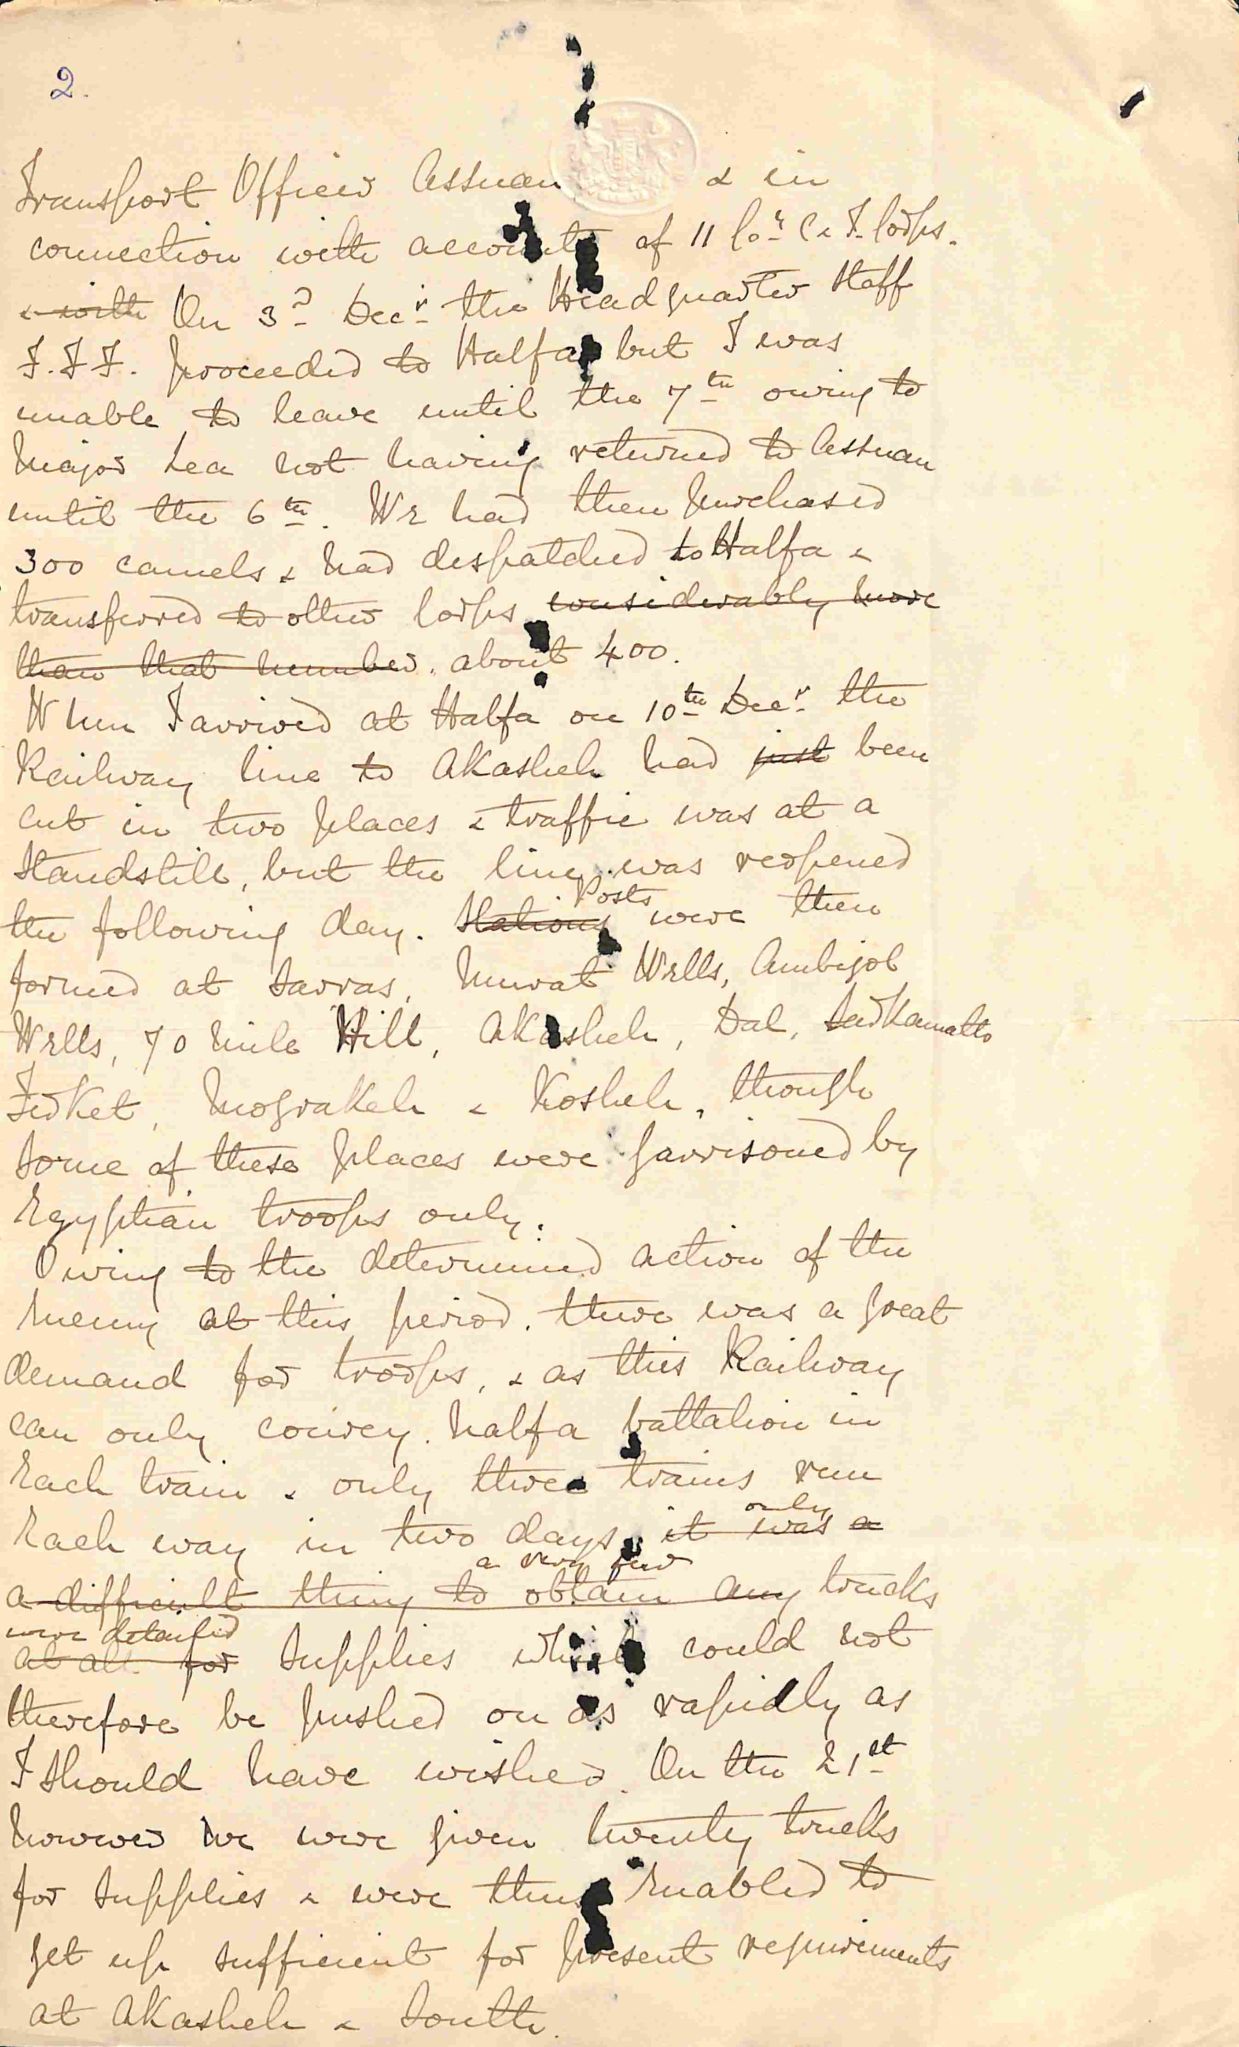 2.
Transport Officer Assuan & in
connection with accounts of 11 Coy. C & T. Corps.
& with On 3rd Decr. the Headquarter Staff
F.F.F. proceeded to Halfa but I was
unable to leave until the 7th owing to
Major Lea not having returned to Assuan
until the 6th. We had then purchased
300 camels & had despatched to Halfa &
transferred to other Corps considerably more
than that number. about 400.
When I arrived at Halfa on 10th Decr. the
Railway line to Akasheh had just been
cut in two places & traffic was at a
standstill, but the line was reopened
Posts
the following day. Stations were then
formed at Sarras, Murat Wells, Ambigol
Wells, 70 Mile Hill, Akasheh, Dal, Sarkamatto
Firket, Mograkeh & Kosheh, though
some of these places were garrisoned by
Egyptian troops only.
Owing to the determined action of the
Enemy at this period, there was a great
demand for troops, & as this Railway
can only convey half a battalion in
Each train & only three trains run
only
Each way in two days, it was a
a very few
a difficult thing to obtain any trucks
were detailed
at all for Supplies which could not
therefore be pushed on as rapidly as
I should have wished. On the 21st
however we were given twenty trucks
for supplies & were thus Enabled to
get up sufficient for present requirements
at Akasheh & South.